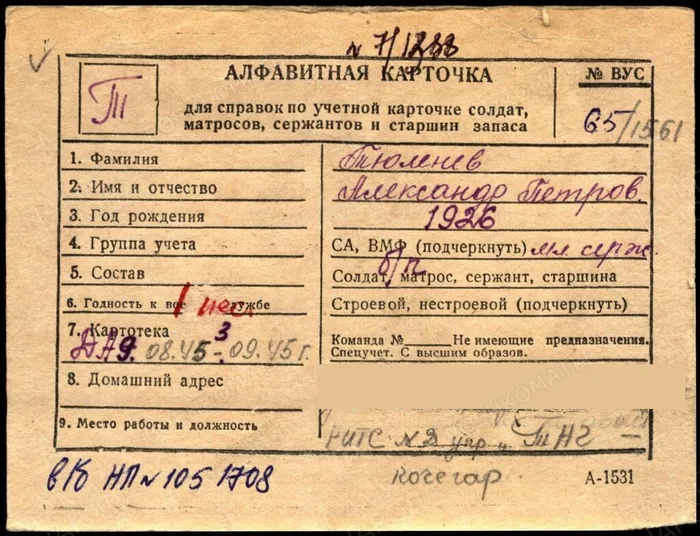 № 7/1288
АЛФАВИТНАЯ КАРТОЧКА
для справок по учетной карточке солдат,
матросов, сержантов и старшин запаса
Т
№ ВУС
65/1561
1. Фамилия Тюменев
2. Имя и отчество Александр Петров.
3. Год рождения 1926
4. Группа учета СА, ВМФ (подчеркнуть) мл. серж.
5. Состав Солдат, матрос, сержант, старшина б/п
6. Годность к вое службе Строевой, нестроевой (подчеркнуть)
7. Картотека 3 Команда № Не имеющие предназначения.
08.45 - 09.45 г. Спецучет. С высшим образов.
8. Домашний адрес
9. Место работы и должность
РИТС № 2 упр
кочегар
вко НП № 1051708
А-1531